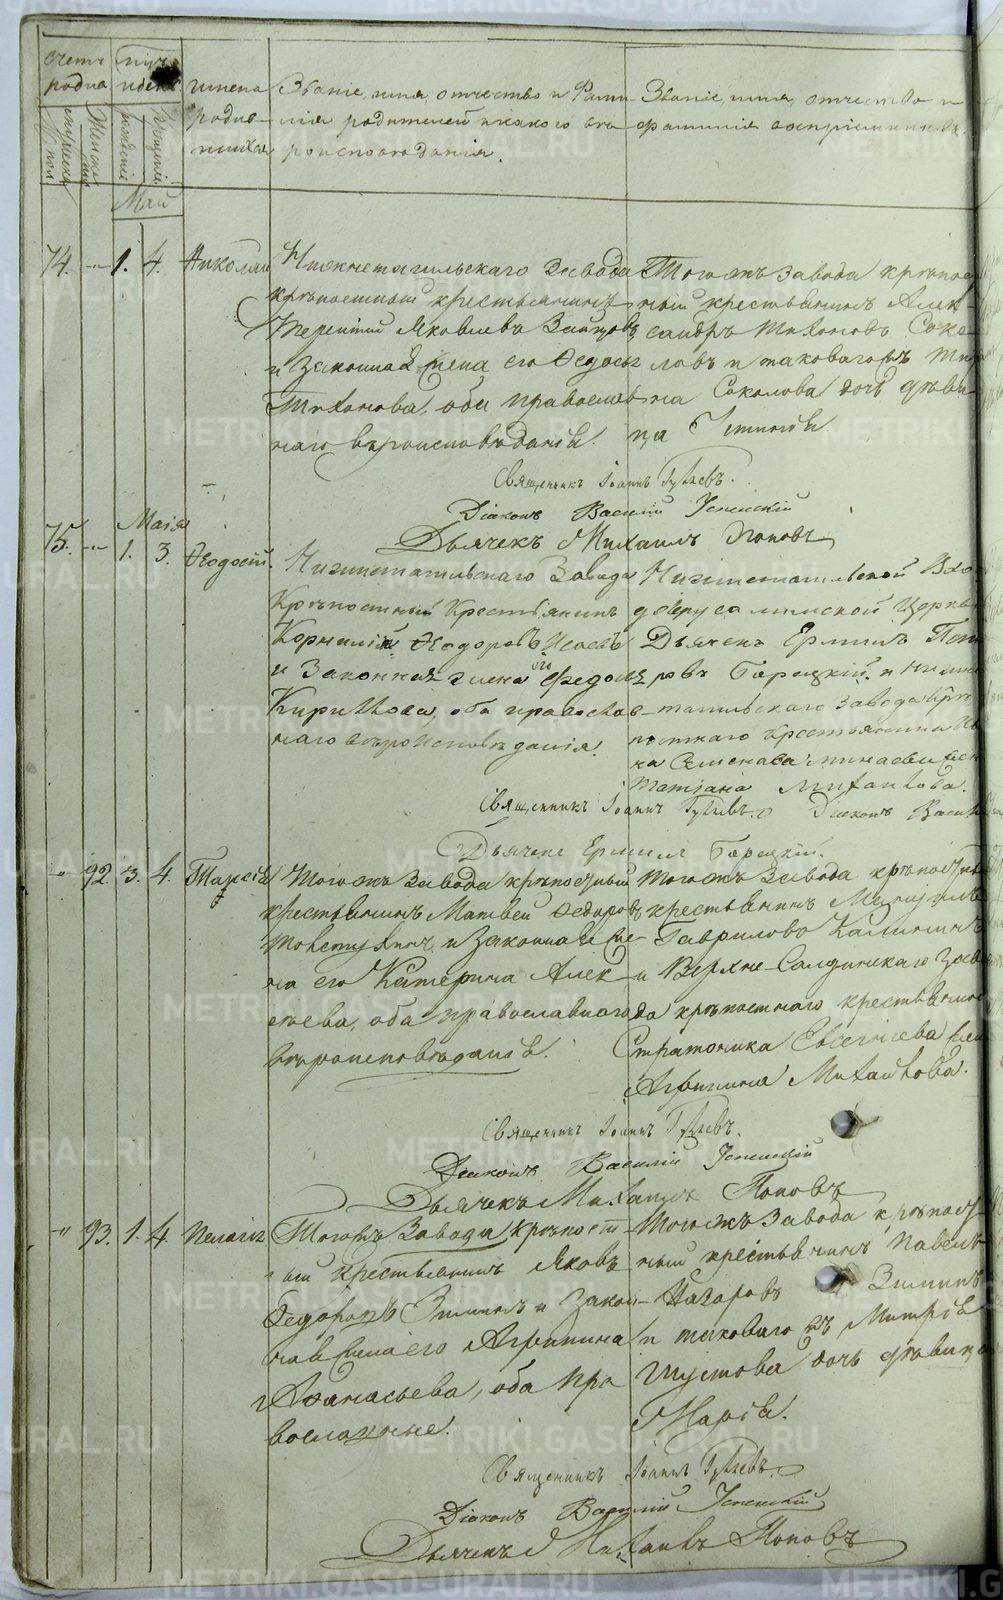 Счетъ родив
мужеска пол
Женска
Мѣс. и день
рожденія
крещенія
Май
имена родив шихся
Званіе, имя, отчество и Фами
лія родителей и какого вѣ
роисповѣданія.
Званіе, имя, отчество и
фамилія воспріемниковъ.
74. -"- 1. 4. Николай
Нижнетагильскаго Завода
крѣпостный крестьянинъ
Терентій Яковлевъ Зайцовъ
и Законная жена его Ѳедосья
Тихонова, оба православ
наго вѣроисповѣданія.
Того жъ завода крѣпос
ный крестьянинъ Алек
сандръ Тихоновъ Соко
ловъ и таковагожъ
на Соколова дочь дѣви
ца
Священникъ Іоаннъ
Діаконъ Василій Успенскій
Дьячекъ Михаилъ Поповъ
Маія
75. -"- 1. 3. Ѳеодосій.
Нижнетагильскаго Завода
Крѣпостный Крестьянинъ
Корнилій Ѳеодоровъ Исаевъ
и Законная жена его Ѳедось
Кирилова, оба православ
наго вѣроисповѣданія.
Нижнетагильской Вхо
доіерусалимской Церкви
Дьячекъ Ермилъ Пет
ровъ Горецкій и Нижне
тагильскаго Завода крѣ
постнаго крестьянина
на жен
Татіана Михайлова.
Священникъ Іоаннъ Діаконъ Васил
Дьячекъ Ермилъ Горецкій.
-"- 92. 3. 4. Таисія
Того жъ Завода крѣпостный
крестьянинъ Матвей Ѳедоров
и Законная же
на его Катерина Алек
сѣева, оба православнаго
вѣроисповѣданія.
Того жъ Завода крѣпостны
крестьянинъ
Гаврилово Калининъ
и Верхне-Салдинскаго Заво
да крѣпостнаго крестьянина
Стратоника Евсегніева жен
Агрипина Михайлова.
Священникъ Іоаннъ
Діаконъ Василій Успенскій
Дьячекъ Михаилъ Поповъ
-"- 93. 1. 4. Пелагія
Тогожъ Завода крѣпост
ный крестьянинъ Яковъ
Ѳедоровъ Зиминъ и Закон
ная жена его Агрипина
Аѳанасьева, оба пра
вославные.
Того жъ Завода крѣпост
ный крестьянинъ Павелъ
Назаровъ Зиминъ
и таковаго жъ Дмитрія
Шустова дочь дѣвица
Марія.
Священникъ Іоаннъ
Діаконъ Василій Успенскій
Дьячекъ Михаилъ Поповъ
METRIKI.GASO-URAL.RU